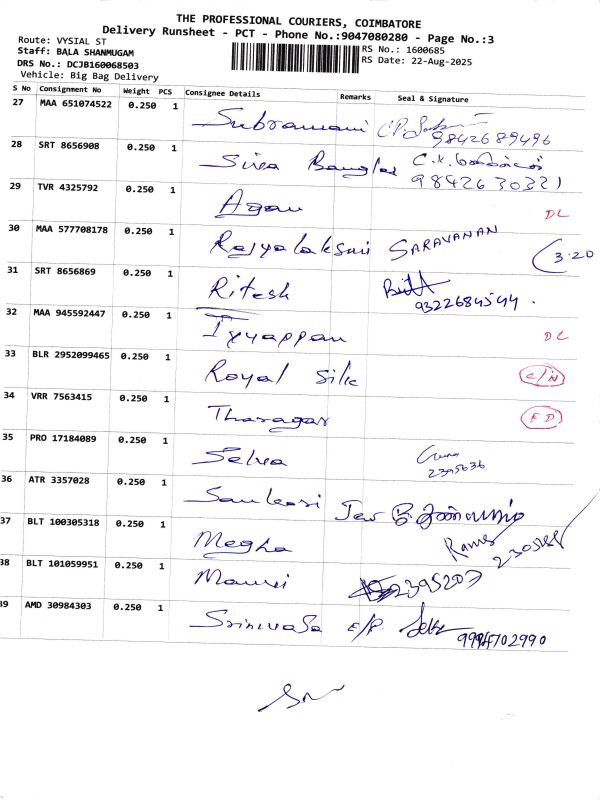 THE PROFESSIONAL COURIERS, COIMBATORE
Delivery Runsheet - PCT - Phone No.:9047080280 - Page No.:3
Route: VYSIAL ST
Staff: BALA SHANMUGAM
RS No.: 1600685
DRS No.: DCJB160068503
RS Date: 22-Aug-2025
Vehicle: Big Bag Delivery
S No Consignment No Weight PCS Consignee Details Remarks Seal & Signature
27 MAA 651074522 0.250 1 Subramani
9842689496
28 SRT 8656908 0.250 1 Siva Bangles C.K.
9842630321
29 TVR 4325792 0.250 1 Agau DL
30 MAA 577708178 0.250 1 Rajyalaksmi SARAVANAN 3.20
31 SRT 8656869 0.250 1 Ritesh
9322684544.
32 MAA 945592447 0.250 1 Iyyappan DL
33 BLR 2952099465 0.250 1 Royal Silk C/N
34 VRR 7563415 0.250 1 Tharagar ED
35 PRO 17184089 0.250 1 Selva
2395636
36 ATR 3357028 0.250 1 Sankari Jew
37 BLT 100305318 0.250 1 Megha
38 BLT 101059951 0.250 1 Mausi 2395203
39 AMD 30984303 0.250 1 Srinivasa E/P.
9994702990